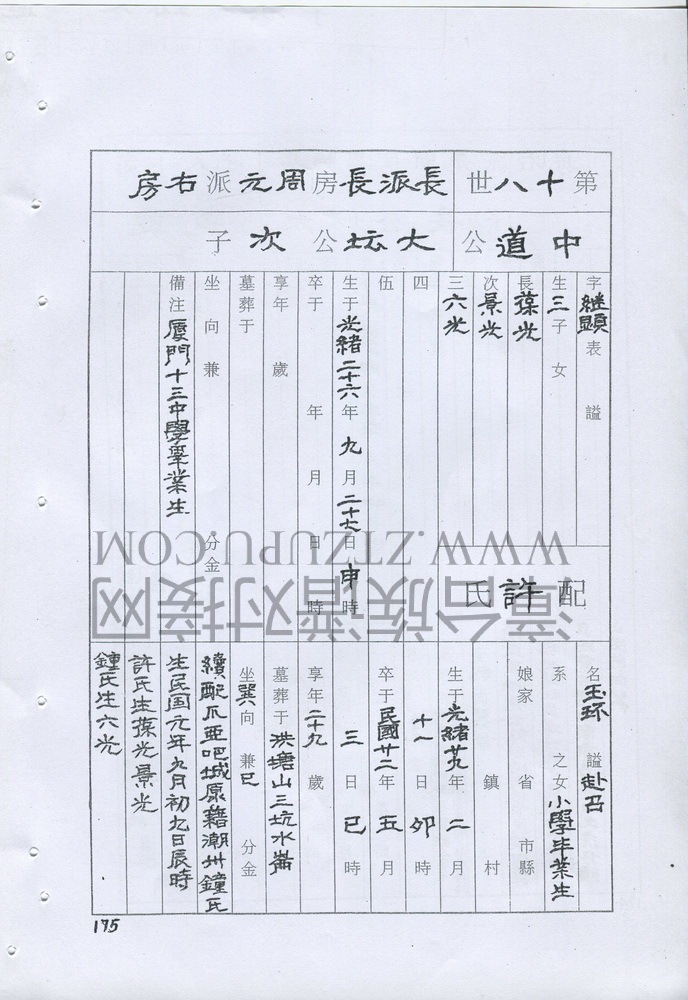 第十八世
長派長房周元派右房
中道公
大坛公次子
字継顕表 謚
生三子女
長葆光
次景光
三六光
四
伍
生于光緒二十六年九月二十七日申時
卒于 年 月 日 時
享年 歲
墓葬于
坐 向 兼 分金
備注厦門十三中學畢業生
配許氏
名玉环謚赴召
系 之女小學毕業生
娘家 省 市縣
鎮 村
生于光緒廿九年二月
十一日卯時
卒于民國廿二年五月
三日巳時
享年二十九歲
墓葬于洪塘山三坑水崙
坐巽向 兼巳 分金
續配爪亚吧城原藉潮州鐘氏
生民国元年九月初九日辰時
許氏生葆光景光
鐘氏生六光
175
WWW.ZTZUPU.COM
漳台族谱对接网